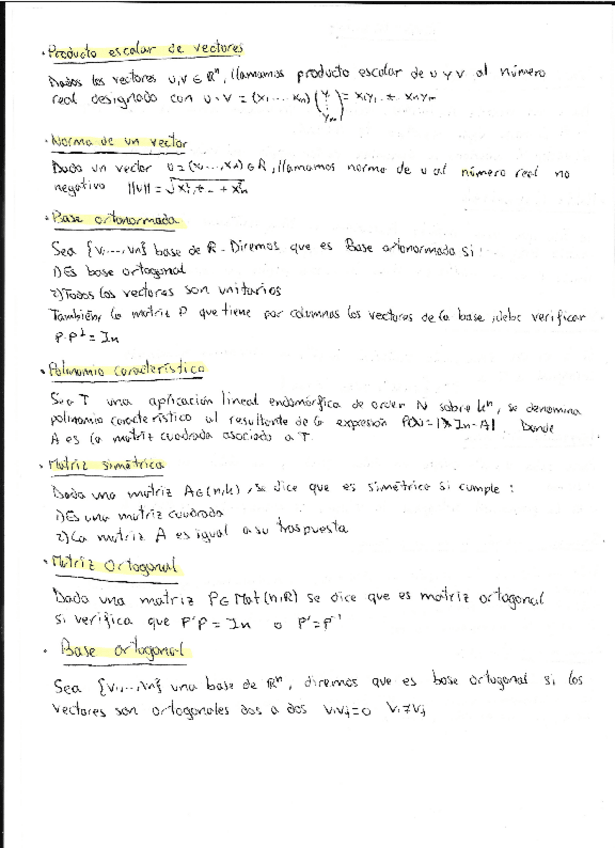 · Producto escalar de vectores
Dados los vectores u,v ∈ Rⁿ, llamamos producto escalar de u y v al número
real designado con u·v = (x₁ ... xₙ) (y₁ ⋮ yₘ) = x₁y₁ + xₙyₘ
· Norma de un vector
Dado un vector u=(x₁,...,xₙ) ∈ R, llamamos norma de u al número real no
negativo ||u|| = √x₁² + ... + xₙ²
· Base ortonormada
Sea {v₁...,vn} base de R. Diremos que es Base ortonormada si
1) Es base ortogonal
2) Todos los vectores son unitarios
También, la matriz P que tiene por columnas los vectores de la base, debe verificar
P·Pᵗ = In
· Polinomio característico
Sea T una aplicación lineal endomórfica de orden N sobre kⁿ, se denomina
polinomio característico al resultante de la expresión P(λ) = |λ In - A|. Donde
A es la matriz cuadrada asociada a T.
· Matriz simétrica
Dada una matriz A∈(n,k), se dice que es simétrica si cumple:
1) Es una matriz cuadrada
2) La matriz A es igual a su traspuesta
· Matriz Ortogonal
Dada una matriz P∈Mat(n,R) se dice que es matriz ortogonal
si verifica que P'P = In o P'=P⁻¹
· Base ortogonal
Sea {v₁,...,vn} una base de Rⁿ, diremos que es base ortogonal si los
vectores son ortogonales dos a dos vᵢvⱼ=0 vᵢ≠vⱼ